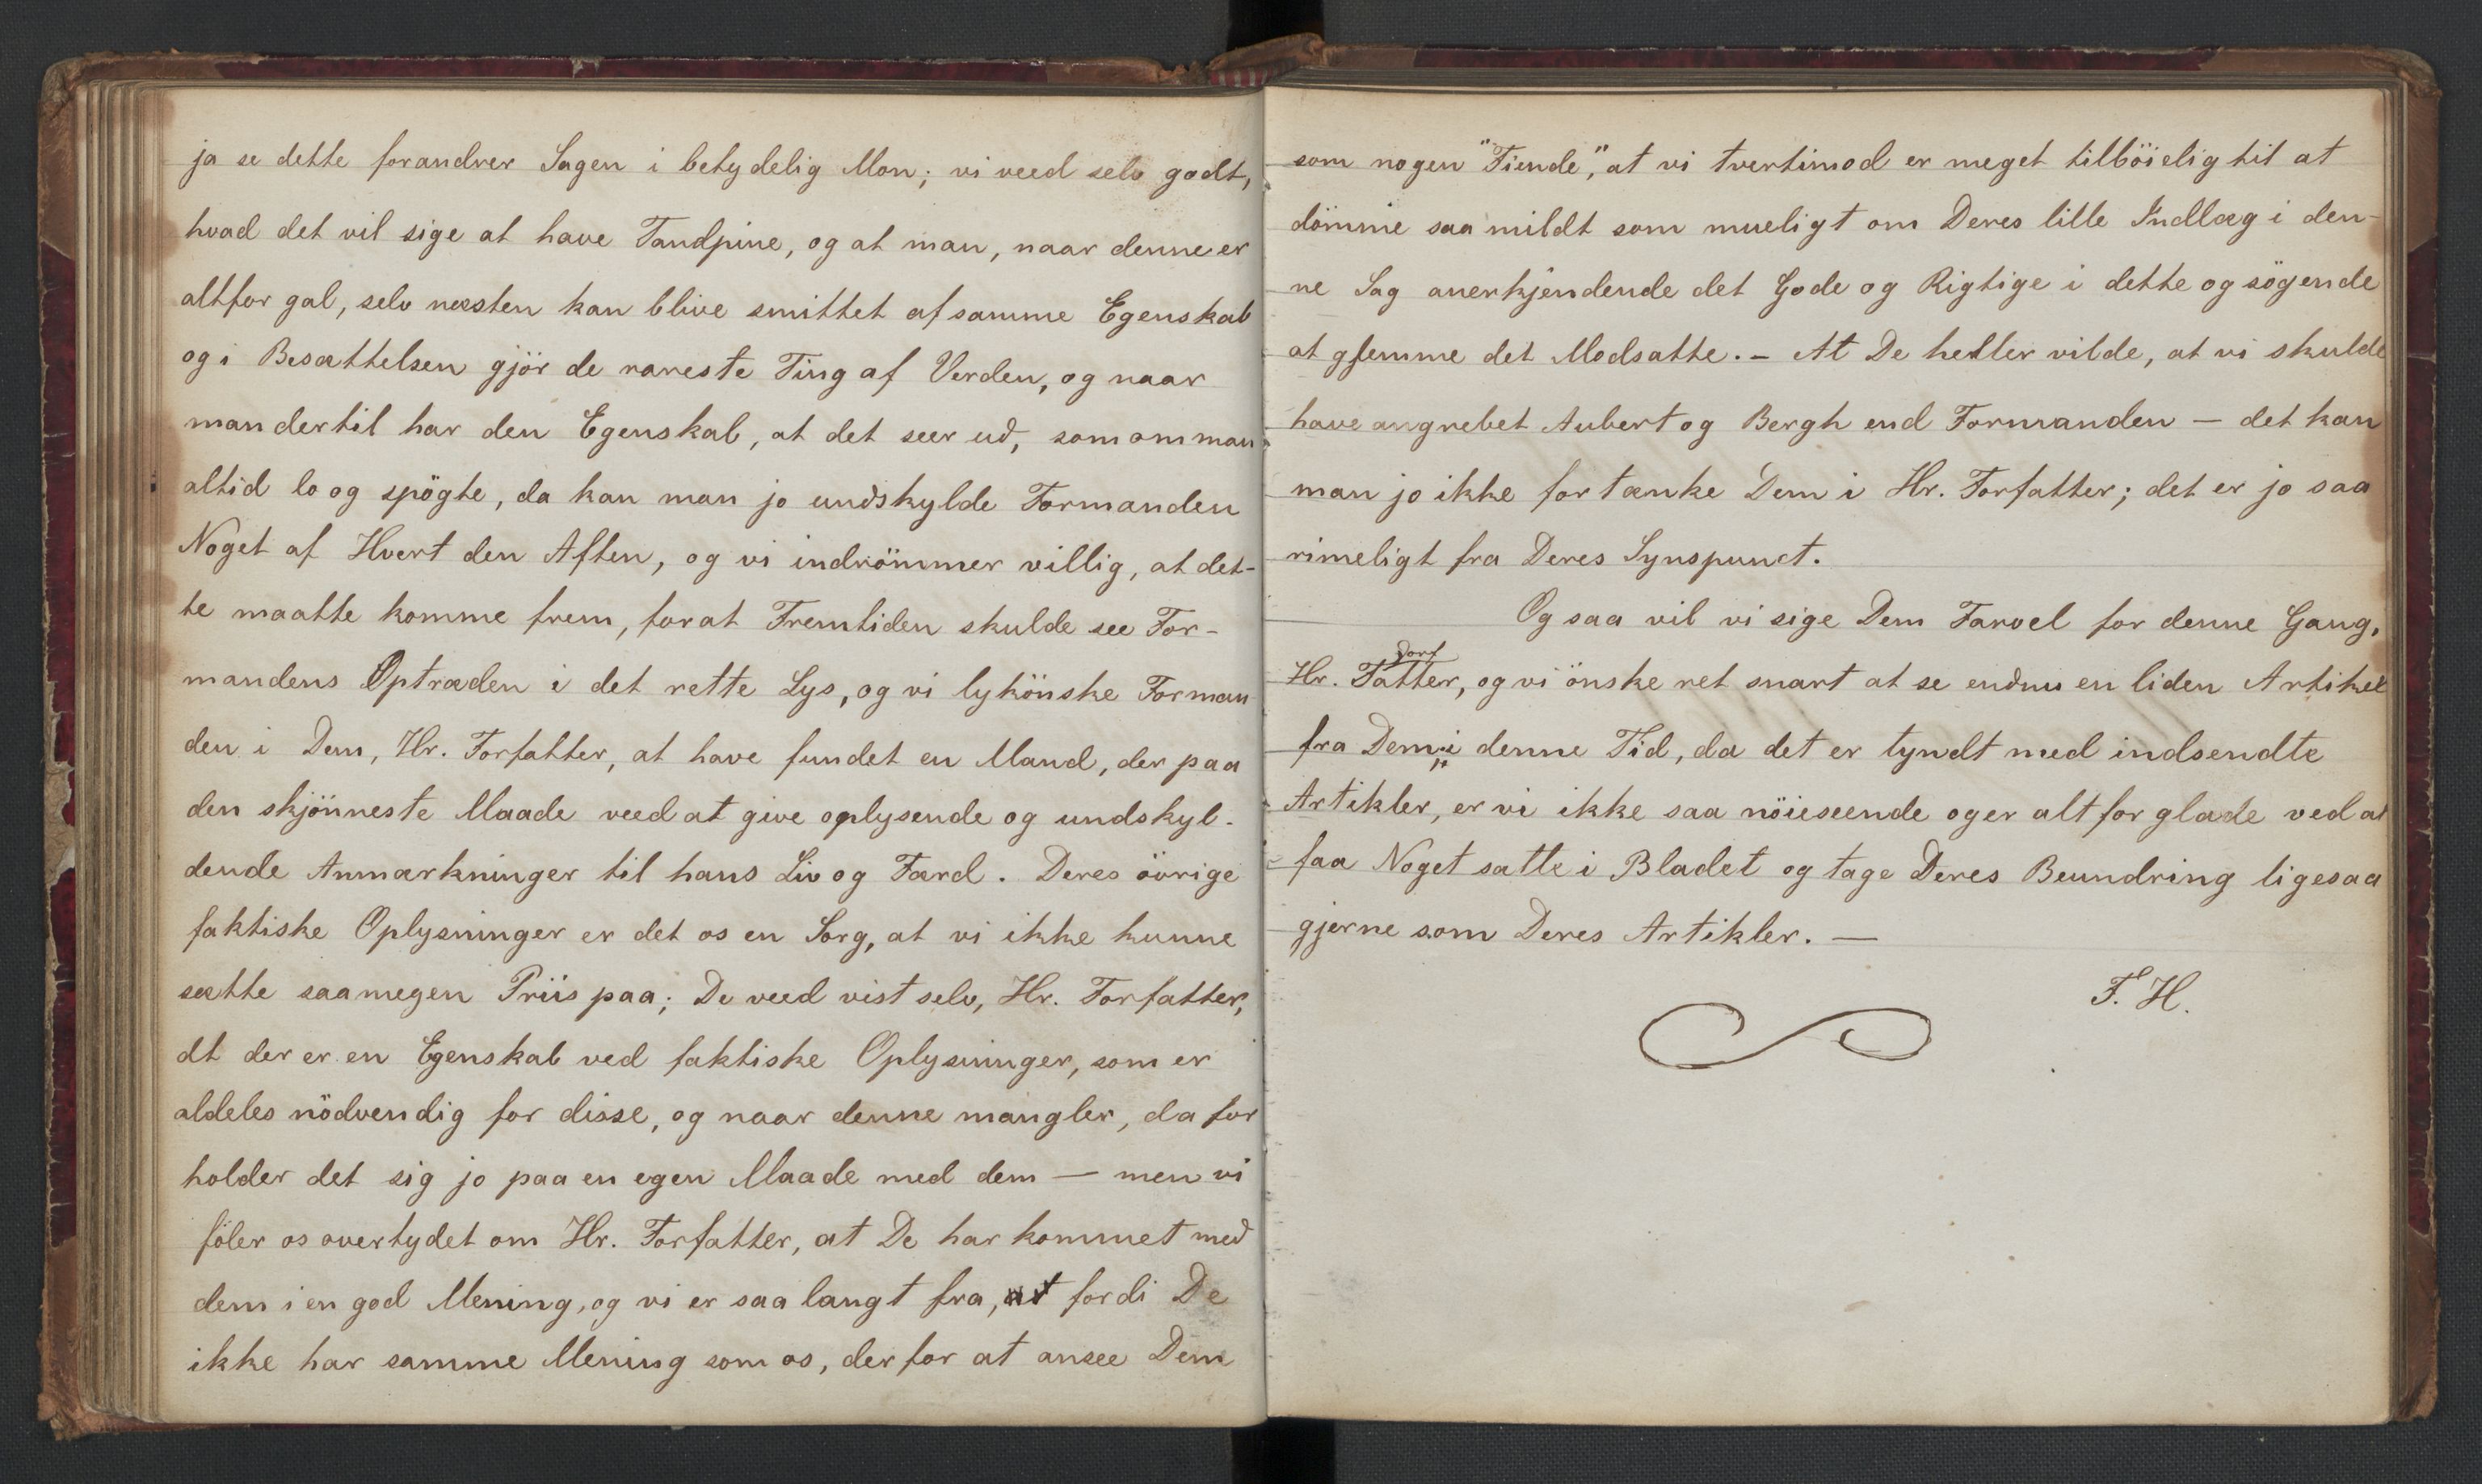 ja se dette forandrer Sagen i betydelig Mon; vi veed selv godt,
hvad det vil sige at have Tandpine, og at man, naar denne er
altfor gal, selv næsten kan blive smittet af samme Egenskab
og i Besættelsen gjör de rareste Ting af Verden, og naar
man dertil har den Egenskab, at det seer ud, som om man
altid lo og spögte, da kan man jo undskylde Formanden
Noget af Hvert den Aften, og vi indrömmer villig, at det-
te maatte komme frem, forat Fremtiden skulde see For-
mandens Optræden i det rette Lys, og vi lykönske Forman
den i Dem, Hr. Forfatter, at have fundet en Mand, der paa
den skjönneste Maade veed at give oplysende og undskyl-
dende Anmærkninger til hans Liv og Færd. Deres övrige
faktiske Oplysninger er det os en Sorg, at vi ikke kunne
sætte saamegen Priis paa; De veed vist selv, Hr. Forfatter,
at der er en Egenskab ved faktiske Oplysninger, som er
aldeles nödvendig for disse, og naar denne mangler, da for
holder det sig jo paa en egen Maade med dem — men vi
föler os overtydet om Hr. Forfatter, at De har kommet med
dem i en god Mening, og vi er saa langt fra, at fordi De
ikke har samme Mening som os, derfor at ansee Dem
som nogen "Fiende", at vi tvertimod er meget tilböielig til at
dömme saa mildt som mueligt om Deres lille Indlæg i den-
ne Sag anerkjendende det Gode og Rigtige i dette og sögende
at gjemme det Modsatte. – At De heller vilde, at vi skulde
have angrebet Aubert og Bergh end Formanden — det kan
man jo ikke fortænke Dem i Hr. Forfatter; det er jo saa
rimeligt fra Deres Synspunct.
Og saa vil vi sige Dem Farvel for denne Gang,
Hr. Fatter, og vi önske ret snart at se endnu en liden Artikel
fra Dem; i denne Tid, da det er tyndt med indsendte
Artikler, er vi ikke saa nöieseende og er alt for glade ved at
faa Noget satte i Bladet og tage Deres Beundring ligesaa
gjerne som Deres Artikler. —
F. H.